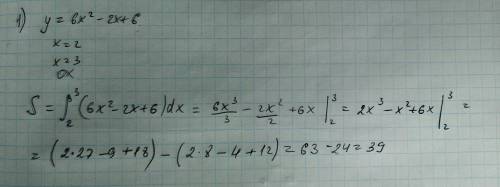 1) y = 6x² - 2x + 6
x = 2
x = 3
OX
S = ∫₂³ (6x² - 2x + 6) dx = 6x³/3 - 2x²/2 + 6x |₂³ = 2x³ - x² + 6x |₂³ =
= (2·27 - 9 + 18) - (2·8 - 4 + 12) = 63 - 24 = 39